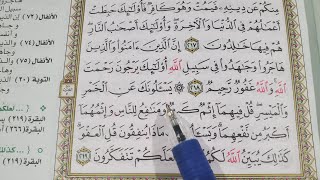 فَيَمُتْ وَهُوَ كَافِرٌ فَأُو۟لَٰٓئِكَ حَبِطَتْ
أَعْمَٰلُهُمْ فِى ٱلدُّنْيَا وَٱلْءَاخِرَةِ ۖ وَأُو۟لَٰٓئِكَ أَصْحَٰبُ ٱلنَّارِ ۖ
هُمْ فِيهَا خَٰلِدُونَ ٢١٧ إِنَّ ٱلَّذِينَ ءَامَنُوا۟ وَٱلَّذِينَ
هَاجَرُوا۟ وَجَٰهَدُوا۟ فِى سَبِيلِ ٱللَّهِ أُو۟لَٰٓئِكَ يَرْجُونَ رَحْمَتَ
ٱللَّهِ ۚ وَٱللَّهُ غَفُورٌ رَّحِيمٌ ٢١٨ ۞ يَسْـَٔلُونَكَ عَنِ
وَٱلْمَيْسِرِ ۖ قُلْ فِيهِمَآ إِثْمٌ كَبِيرٌ وَمَنَٰفِعُ لِلنَّاسِ وَإِثْمُهُمَآ
أَكْبَرُ مِن نَّفْعِهِمَا ۗ وَيَسْـَٔلُونَكَ مَاذَا يُنفِقُونَ قُلِ ٱلْعَفْوَ ۗ
كَذَٰلِكَ يُبَيِّنُ ٱللَّهُ لَعَلَّكُمْ تَتَفَكَّرُونَ ٢١٩
الأنفال (٧٤)
الأنفال (٧٥)
التوبة (٢٠)
البقرة (٢١٩)
البقرة (٢٦٦)